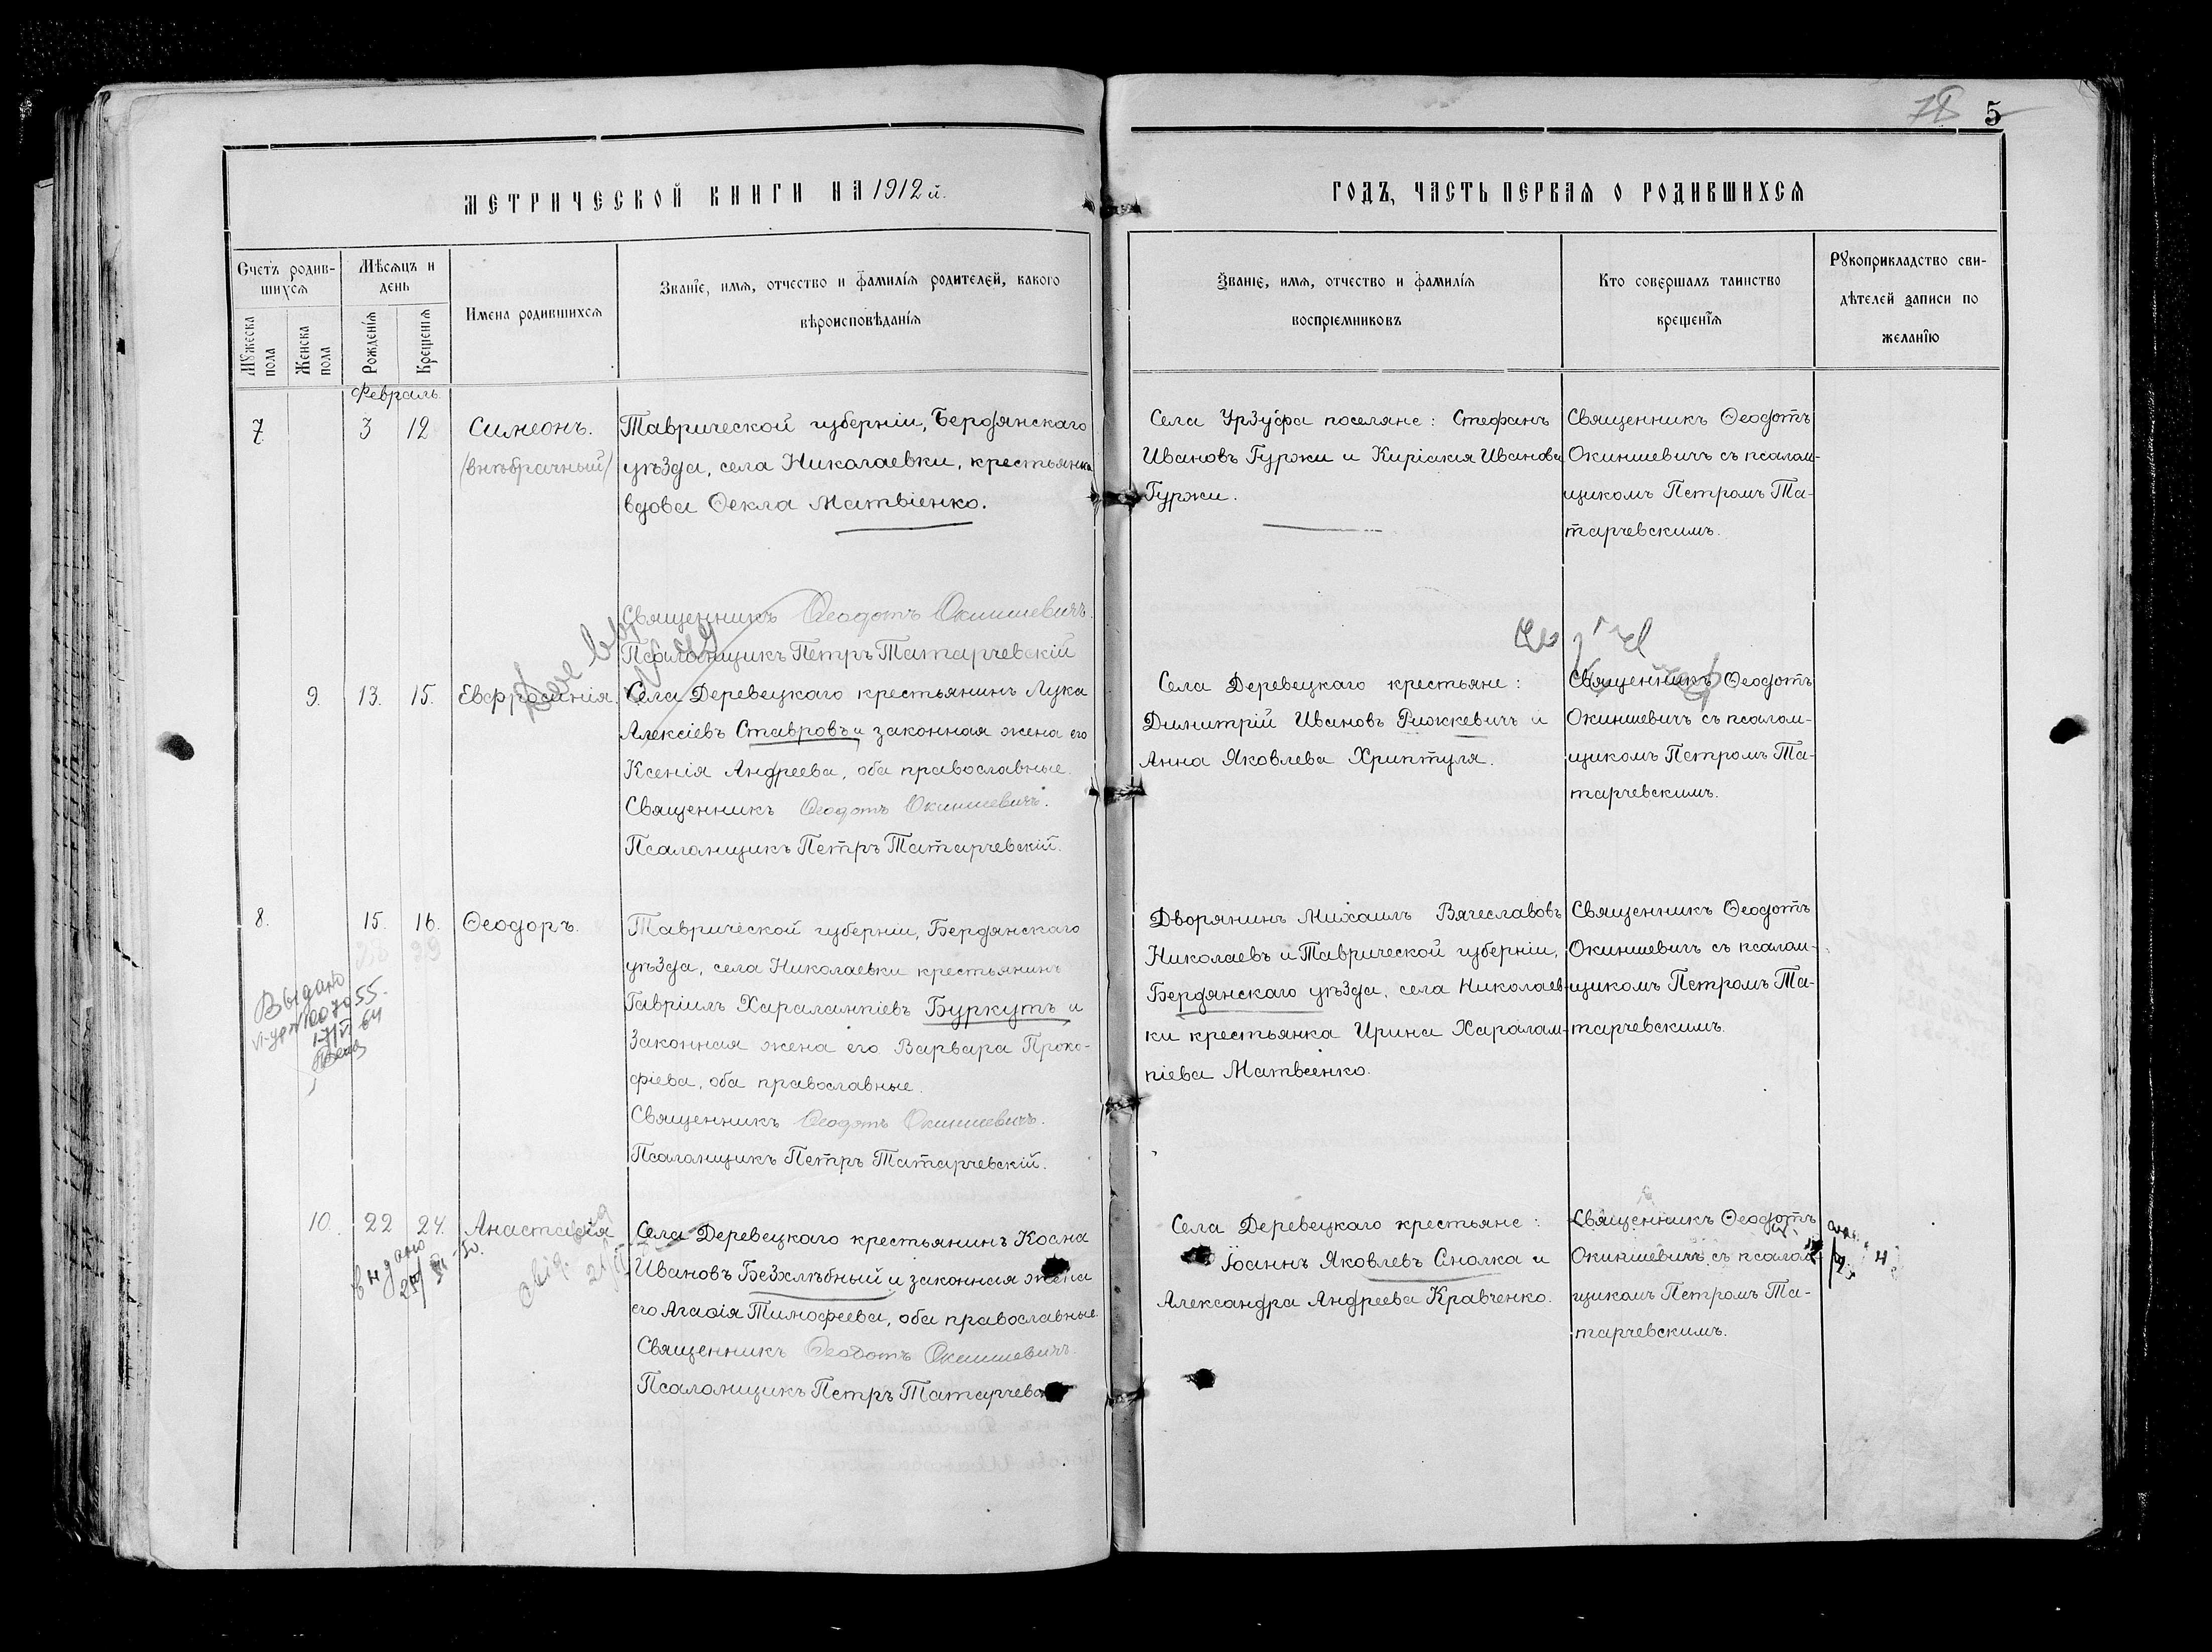 78 5
МЕТРИЧЕСКОЙ КНИГИ НА 1912 й.
ГОДЪ, ЧАСТЬ ПЕРВАЯ О РОДИВШИХСЯ
Счетъ родив-
шихся
Мꙋжеска
пола
Женска
пола
Мѣсяцъ и
день
Рожденїя
Крещенїя
Имена родившихся
Званїе, имя, отчество и фамилїя родителей, какого
вѣроисповѣданїя
Званїе, имя, отчество и фамилїя
воспрїемниковъ
Кто совершалъ таинство
крещенїя
Рꙋкоприкладство сви-
дѣтелей записи по
желанїю
Февраль
7 3 12 Симеонъ.
/внѣбрачный/
Таврической губерніи, Бердянскаго
уѣзда, села Николаевки, крестьянка
вдова Ѳекла Матвіенко.
Священникъ Ѳеодотъ Окиншевичъ.
Псаломщикъ Петръ Татарчевскій
Села Урзуфа поселяне: Стефанъ
Ивановъ Гуржи и Киріакія Иванова
Гуржи.
Священникъ Ѳеодотъ
Окиншевичъ съ псалом-
щикомъ Петромъ Та-
тарчевскимъ.
9. 13. 15. Евфросинія.
Села Деревецкаго крестьянинъ Лука
Алексіевъ Ставровъ и законная жена его
Ксенія Андреева, оба православные.
Священникъ Ѳеодотъ Окиншевичъ.
Псаломщикъ Петръ Татарчевскій.
Села Деревецкаго крестьяне:
Димитрій Ивановъ Рижкевичъ и
Анна Яковлева Хриптуля.
Священникъ Ѳеодотъ
Окиншевичъ съ псалом-
щикомъ Петромъ Та-
тарчевскимъ.
8. 15. 16. Ѳеодоръ.
28 29
Выдано
Таврической губерніи, Бердянскаго
уѣзда, села Николаевки крестьянинъ
Гавріилъ Харалампіевъ Буркутъ и
законная жена его Варвара Проко-
фіева, оба православные.
Священникъ Ѳеодотъ Окиншевичъ.
Псаломщикъ Петръ Татарчевскій.
Дворянинъ Михаилъ Вячеславовъ
Николаевъ и Таврической губерніи,
Бердянскаго уѣзда, села Николаев-
ки крестьянка Ирина Харалам-
піева Матвеенко.
Священникъ Ѳеодотъ
Окиншевичъ съ псалом-
щикомъ Петромъ Та-
тарчевскимъ.
10. 22 24. Анастасія
выдано
Села Деревецкаго крестьянинъ Косма
Ивановъ Безхлѣбный и законная жена
его Агаѳія Тимофеева, оба православные.
Священникъ Ѳеодотъ Окиншевичъ.
Псаломщикъ Петръ
Села Деревецкаго крестьяне:
Іоаннъ Яковлевъ Смолка и
Александра Андреева Кравченко.
Священникъ Ѳеодотъ
Окиншевичъ съ псалом-
щикомъ Петромъ Та-
тарчевскимъ.